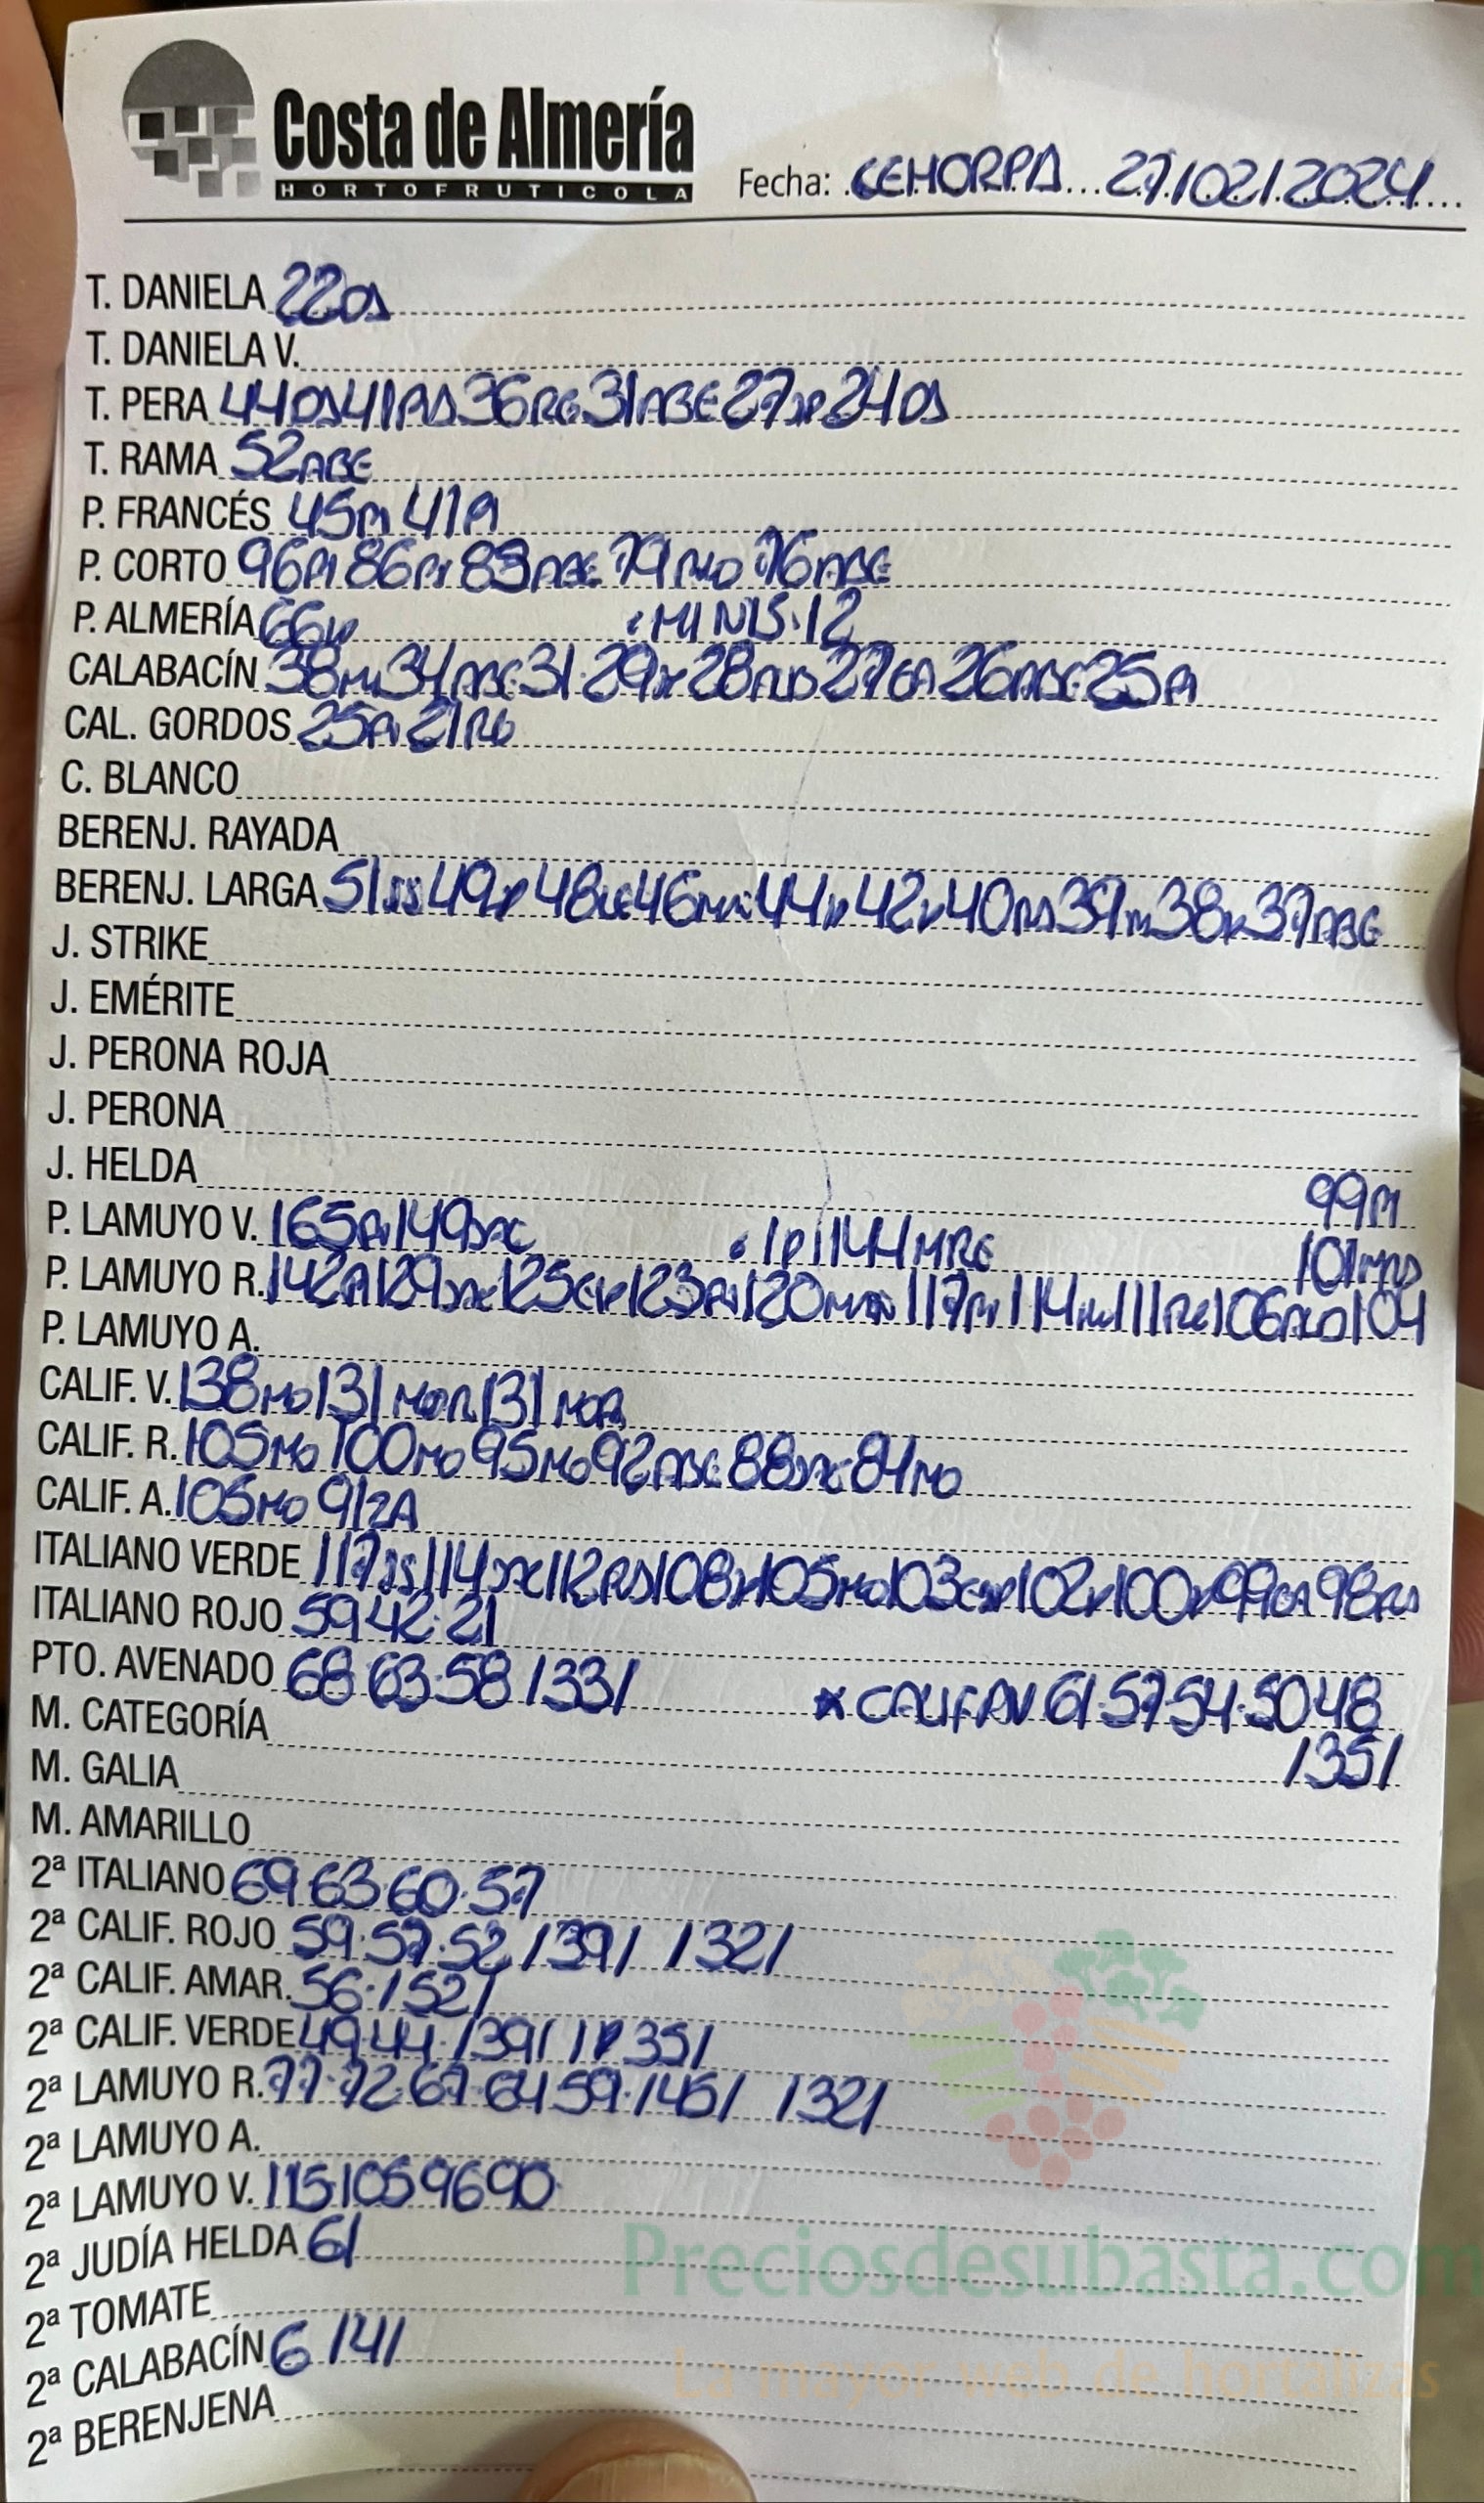 Costa de Almería
HORTOFRUTICOLA
Fecha: CEHORPA 27/02/2024
T. DANIELA 22
T. DANIELA V.
T. PERA 44 41 36 31ABE 27 24
T. RAMA 52ABE
P. FRANCÉS 45 41A
P. CORTO 96 86 83ABE 79 76ABE
P. ALMERÍA 66 MINIS 12
CALABACÍN 38 34ABE 31 29 28 27 26ABE 25A
CAL. GORDOS 25A 21
C. BLANCO
BERENJ. RAYADA
BERENJ. LARGA 51 49 48 46 44 42 40 39 38 37ABE
J. STRIKE
J. EMÉRITE
J. PERONA ROJA
J. PERONA
J. HELDA
99M
P. LAMUYO V. 165 149 144
101
P. LAMUYO R. 142A 129 125 123 120 117 114 111 106 104
P. LAMUYO A.
CALIF. V. 138MO 131 131
CALIF. R. 105MO 100MO 95MO 92ABE 88 84MO
CALIF. A. 105MO 91
ITALIANO VERDE 117 114 112 108 105MO 103 102 100 99 98
ITALIANO ROJO 59 42 21
PTO. AVENADO 68 63 58 /33/ 61 57 54 50 48
M. CATEGORÍA /35/
M. GALIA
M. AMARILLO
2ª ITALIANO 69 63 60 57
2ª CALIF. ROJO 59 57 52 /39/ /32/
2ª CALIF. AMAR. 56 /52/
2ª CALIF. VERDE 49 44 /39/ 35/
2ª LAMUYO R. 77 72 67 64 59 /45/ /32/
2ª LAMUYO A.
2ª LAMUYO V. 115 105 96 90
2ª JUDÍA HELDA 61
2ª TOMATE
2ª CALABACÍN 6 /4/
2ª BERENJENA
Preciosdesubasta.com
La mayor web de hortalizas